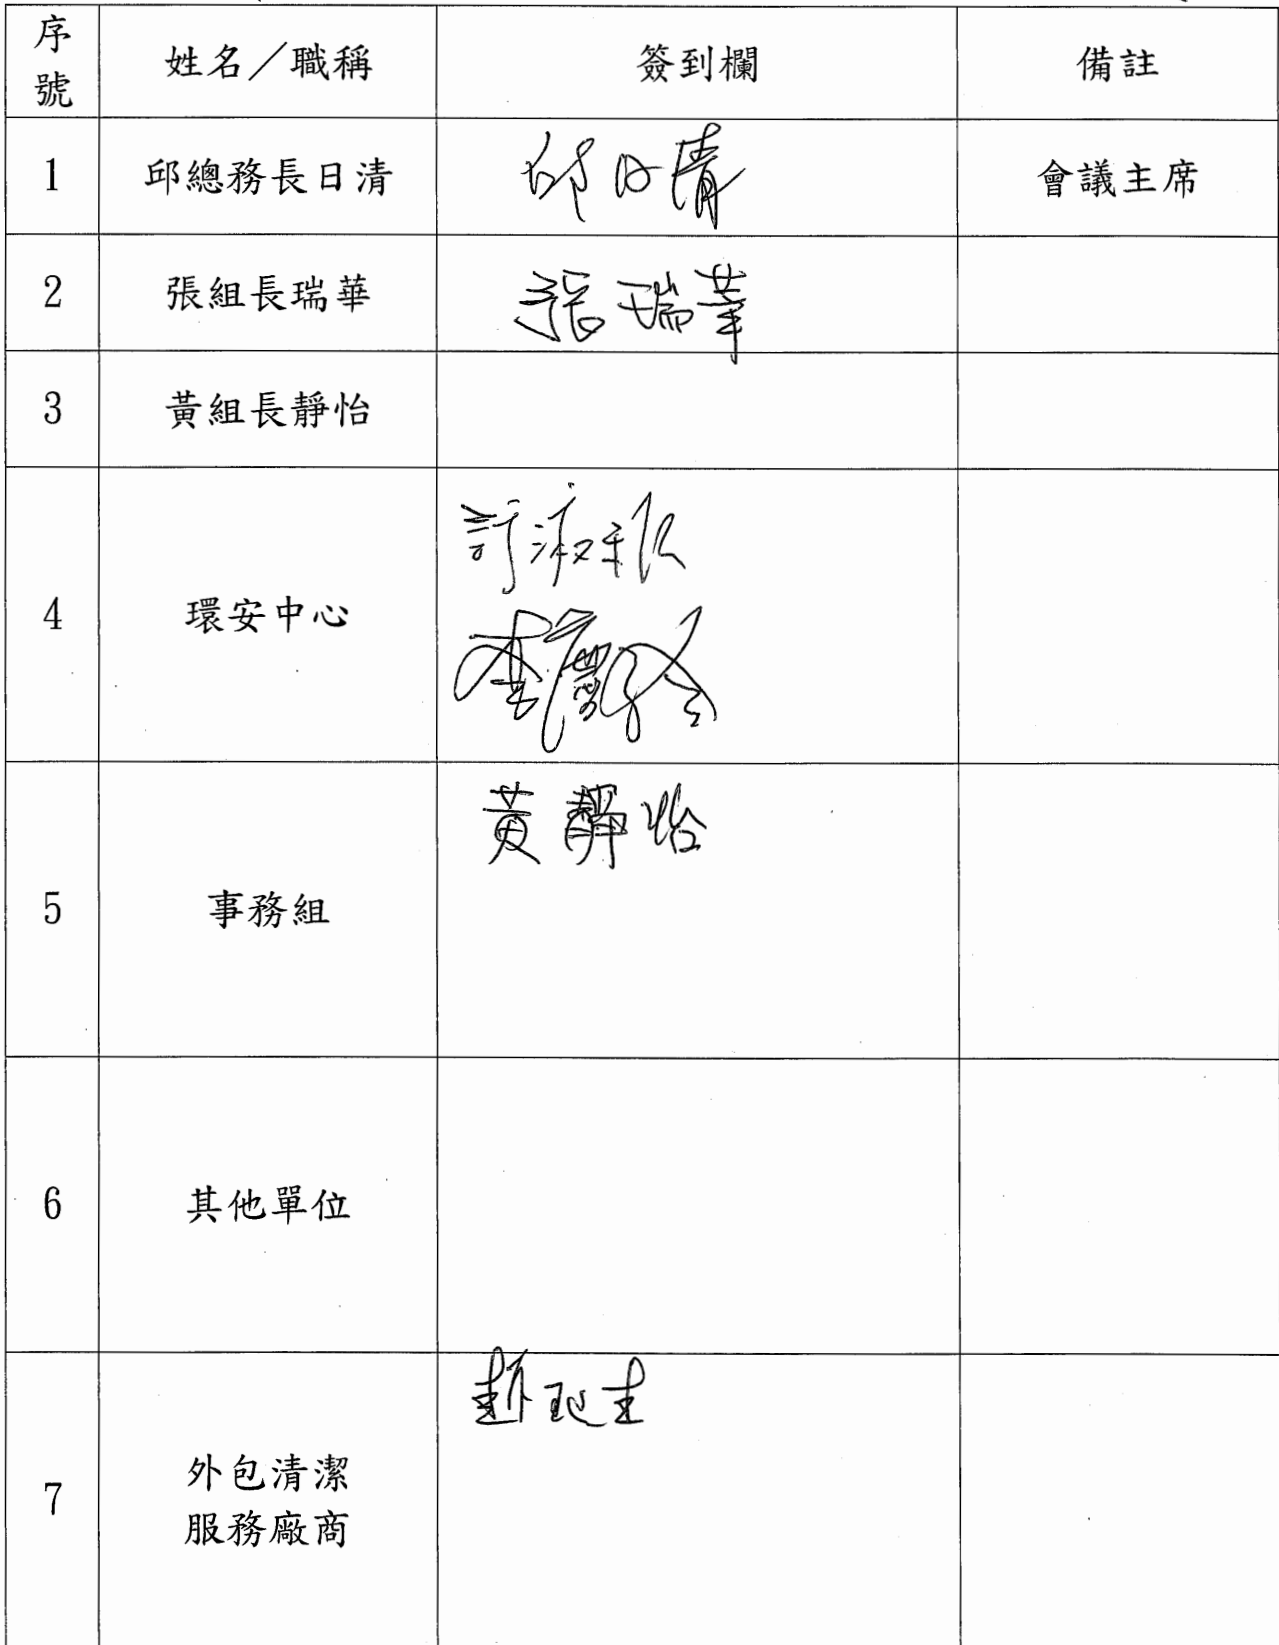 序號 姓名／職稱 簽到欄 備註
1 邱總務長日清 邱日清 會議主席
2 張組長瑞華 張瑞華
3 黃組長靜怡
許淑秋
4 環安中心
黃靜怡
5 事務組
6 其他單位
外包清潔
7
服務廠商